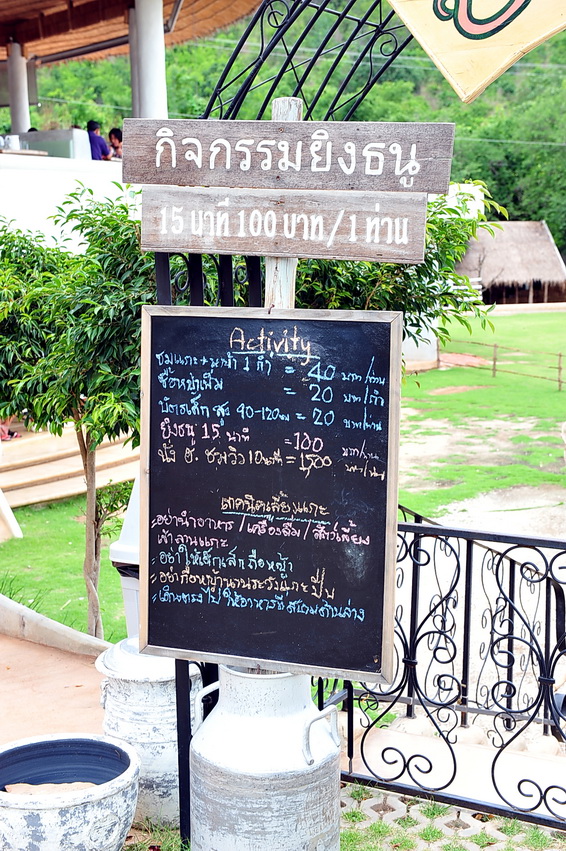 กิจกรรมยิงธนู
15 นาที 100 บาท / 1 ท่าน
Activity
ชมแกะ + หญ้า 1 กำ = 40 บาท/ท่าน
ซื้อหญ้าเพิ่ม = 20 บาท/กำ
บัตรเด็ก สูง 90-120 ซม = 20 บาท/ท่าน
ยิงธนู 15 นาที = 100 บาท/ท่าน
นั่ง ฮ. ชมวิว 10 นาที = 1500 บาท/ท่าน
เทคนิคเลี้ยงแกะ
- อย่านำอาหาร / เครื่องดื่ม / สัตว์เลี้ยง
เข้าลานแกะ
- อย่าให้เด็กเล็กถือหญ้า
- อย่าถือหญ้านานระวังแกะ
- เดินตรงไป ให้อาหารที่ ด้านล่าง